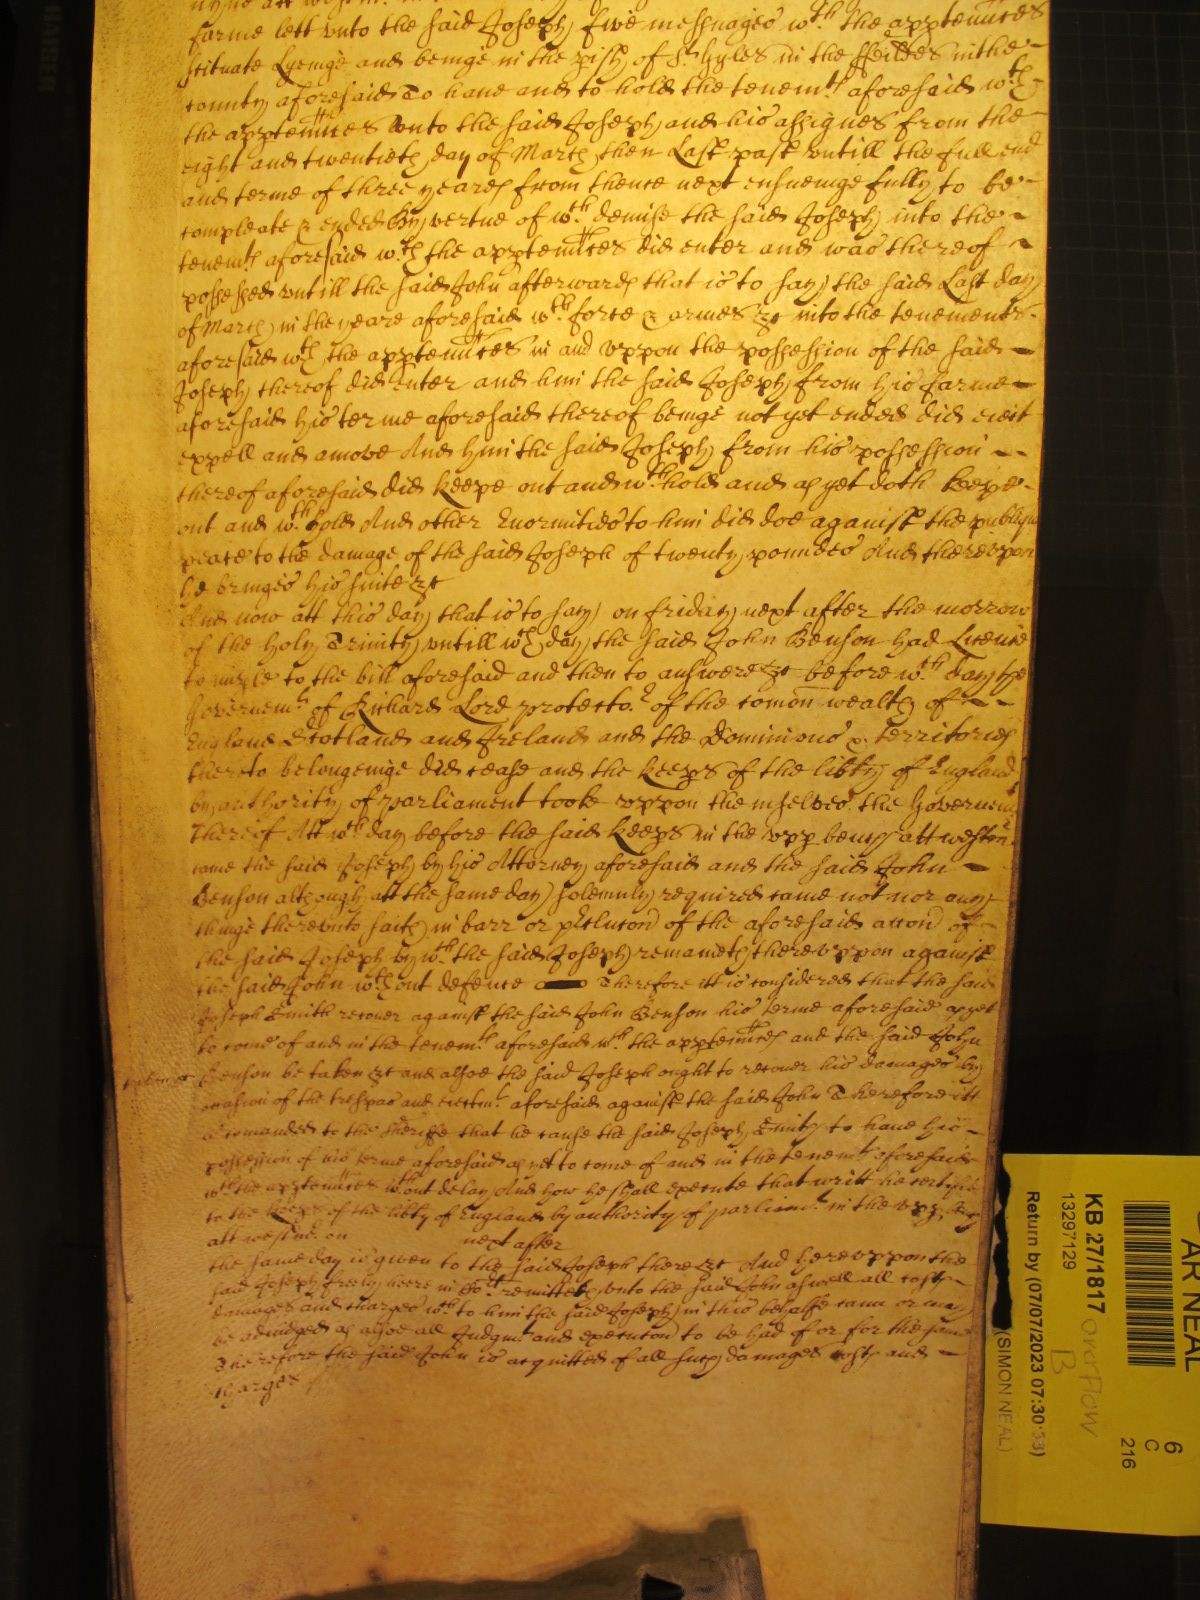 farme lett vnto the said Joseph five messuages wth the apptenñces
scituate Lyeinge and beinge in the pish of St Gyles in the ffeildes in the
County aforesaid To haue and to hold the tenemts aforesaid wth
the apptenñces vnto the said Joseph and his assignes from the
eight and twentieth day of March then Last past vntill the full end
and terme of three yeares from thence next ensueinge fully to be
compleate & ended By vertue of wch demise the said Joseph into the
tenemts aforesaid wth the apptenñces did enter and was thereof
possessed vntill the said John afterwards that is to say the said Last day
of March in the yeare aforesaid wth force & armes &c into the tenements
aforesaid wth the apptenñces in and vppon the possession of the said
Joseph thereof did enter and him the said Joseph from his farme
aforesaid his terme aforesaid thereof beinge not yet ended did eiect
expell and amove And him the said Joseph from his possession
thereof aforesaid did keepe out and wthhold and as yet doth keepe
out and wthhold And other Enormities to him did doe against the publique
peace to the damage of the said Joseph of twenty poundes And therevppon
he bringes his suite &c
And now att this day that is to say on friday next after the morrow
of the holy Trinity vntill wch day the said John Benson had Licence
to imple to the bill aforesaid and then to answere &c before wch day the
Governemt of Richard Lord protector of the comon wealth of
England Scotland and Ireland and the Dominions & territories
thereto belongeinge did cease and the keeps of the libty of England
by authority of parliament tooke vppon themselves the Governemt
thereof Att wch day before the said keeps in the vpp bench att Westm
came the said Joseph by his Attorney aforesaid and the said John
Benson although att the same day solemnly required came not nor any
thinge therevnto saith in barr or pclucon of the aforesaid accon of
the said Joseph by wch the said Joseph remaineth therevppon against
the said John wthout defence Therefore itt is considered that the said
Joseph Smith recover against the said John Benson his terme aforesaid as yet
to come of and in the tenemts aforesaid wth the apptenñces and the said John
Benson be taken &c and alsoe the said Joseph ought to recover his damages by
occasion of the trespas and eiectmt aforesaid against the said John Therefore itt
is comanded to the Sheriffe that he cause the said Joseph Smith to haue his
possession of his terme aforesaid as yet to come of and in the tenemts aforesaid
wth the apptenñces wthout delay And how he shall execute that writt he certyfie
to the keeps of the libty of England by authority of parliamt in the vpp bench
att Westm on next after
the same day is given to the said Joseph there &c And herevppon the
said Joseph freely heere in Court remitteth vnto the said John aswell all costs
damages and charges wch to him the said Joseph in this behalfe came or may
be adiudged as alsoe all Judgmt and execucon to be had of or for the same
Therefore the said John is acquitted of all such damages costs and
charges
AR NEAL
KB 27/1817 overflow
13297129 B
Return by (07/07/2023 07:30:38)
(SIMON NEAL)
6
C
216